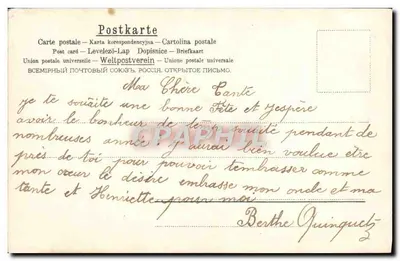 Postkarte
Carte postale — Karta korespondencyjna — Cartolina postale
Post card — Levelező-Lap Dopisnice — Briefkaart
Union postale universelle — Weltpostverein — Unione postale universale
ВСЕМІРНЫЙ ПОЧТОВЫЙ СОЮЗЪ. РОССІЯ. ОТКРЫТОЕ ПИСЬМО.
Ma Chère Tante
je te souaite une bonne Fête et J'espère
avoir le bonheur de te souaité pendant de
nombreuses année. j'aurai bien voulue être
près de toi pour pouvoir tembrasser comme
mon cœur le désire embrasse mon oncle et ma
tante et Henriette pour moi
Berthe Quinquetz